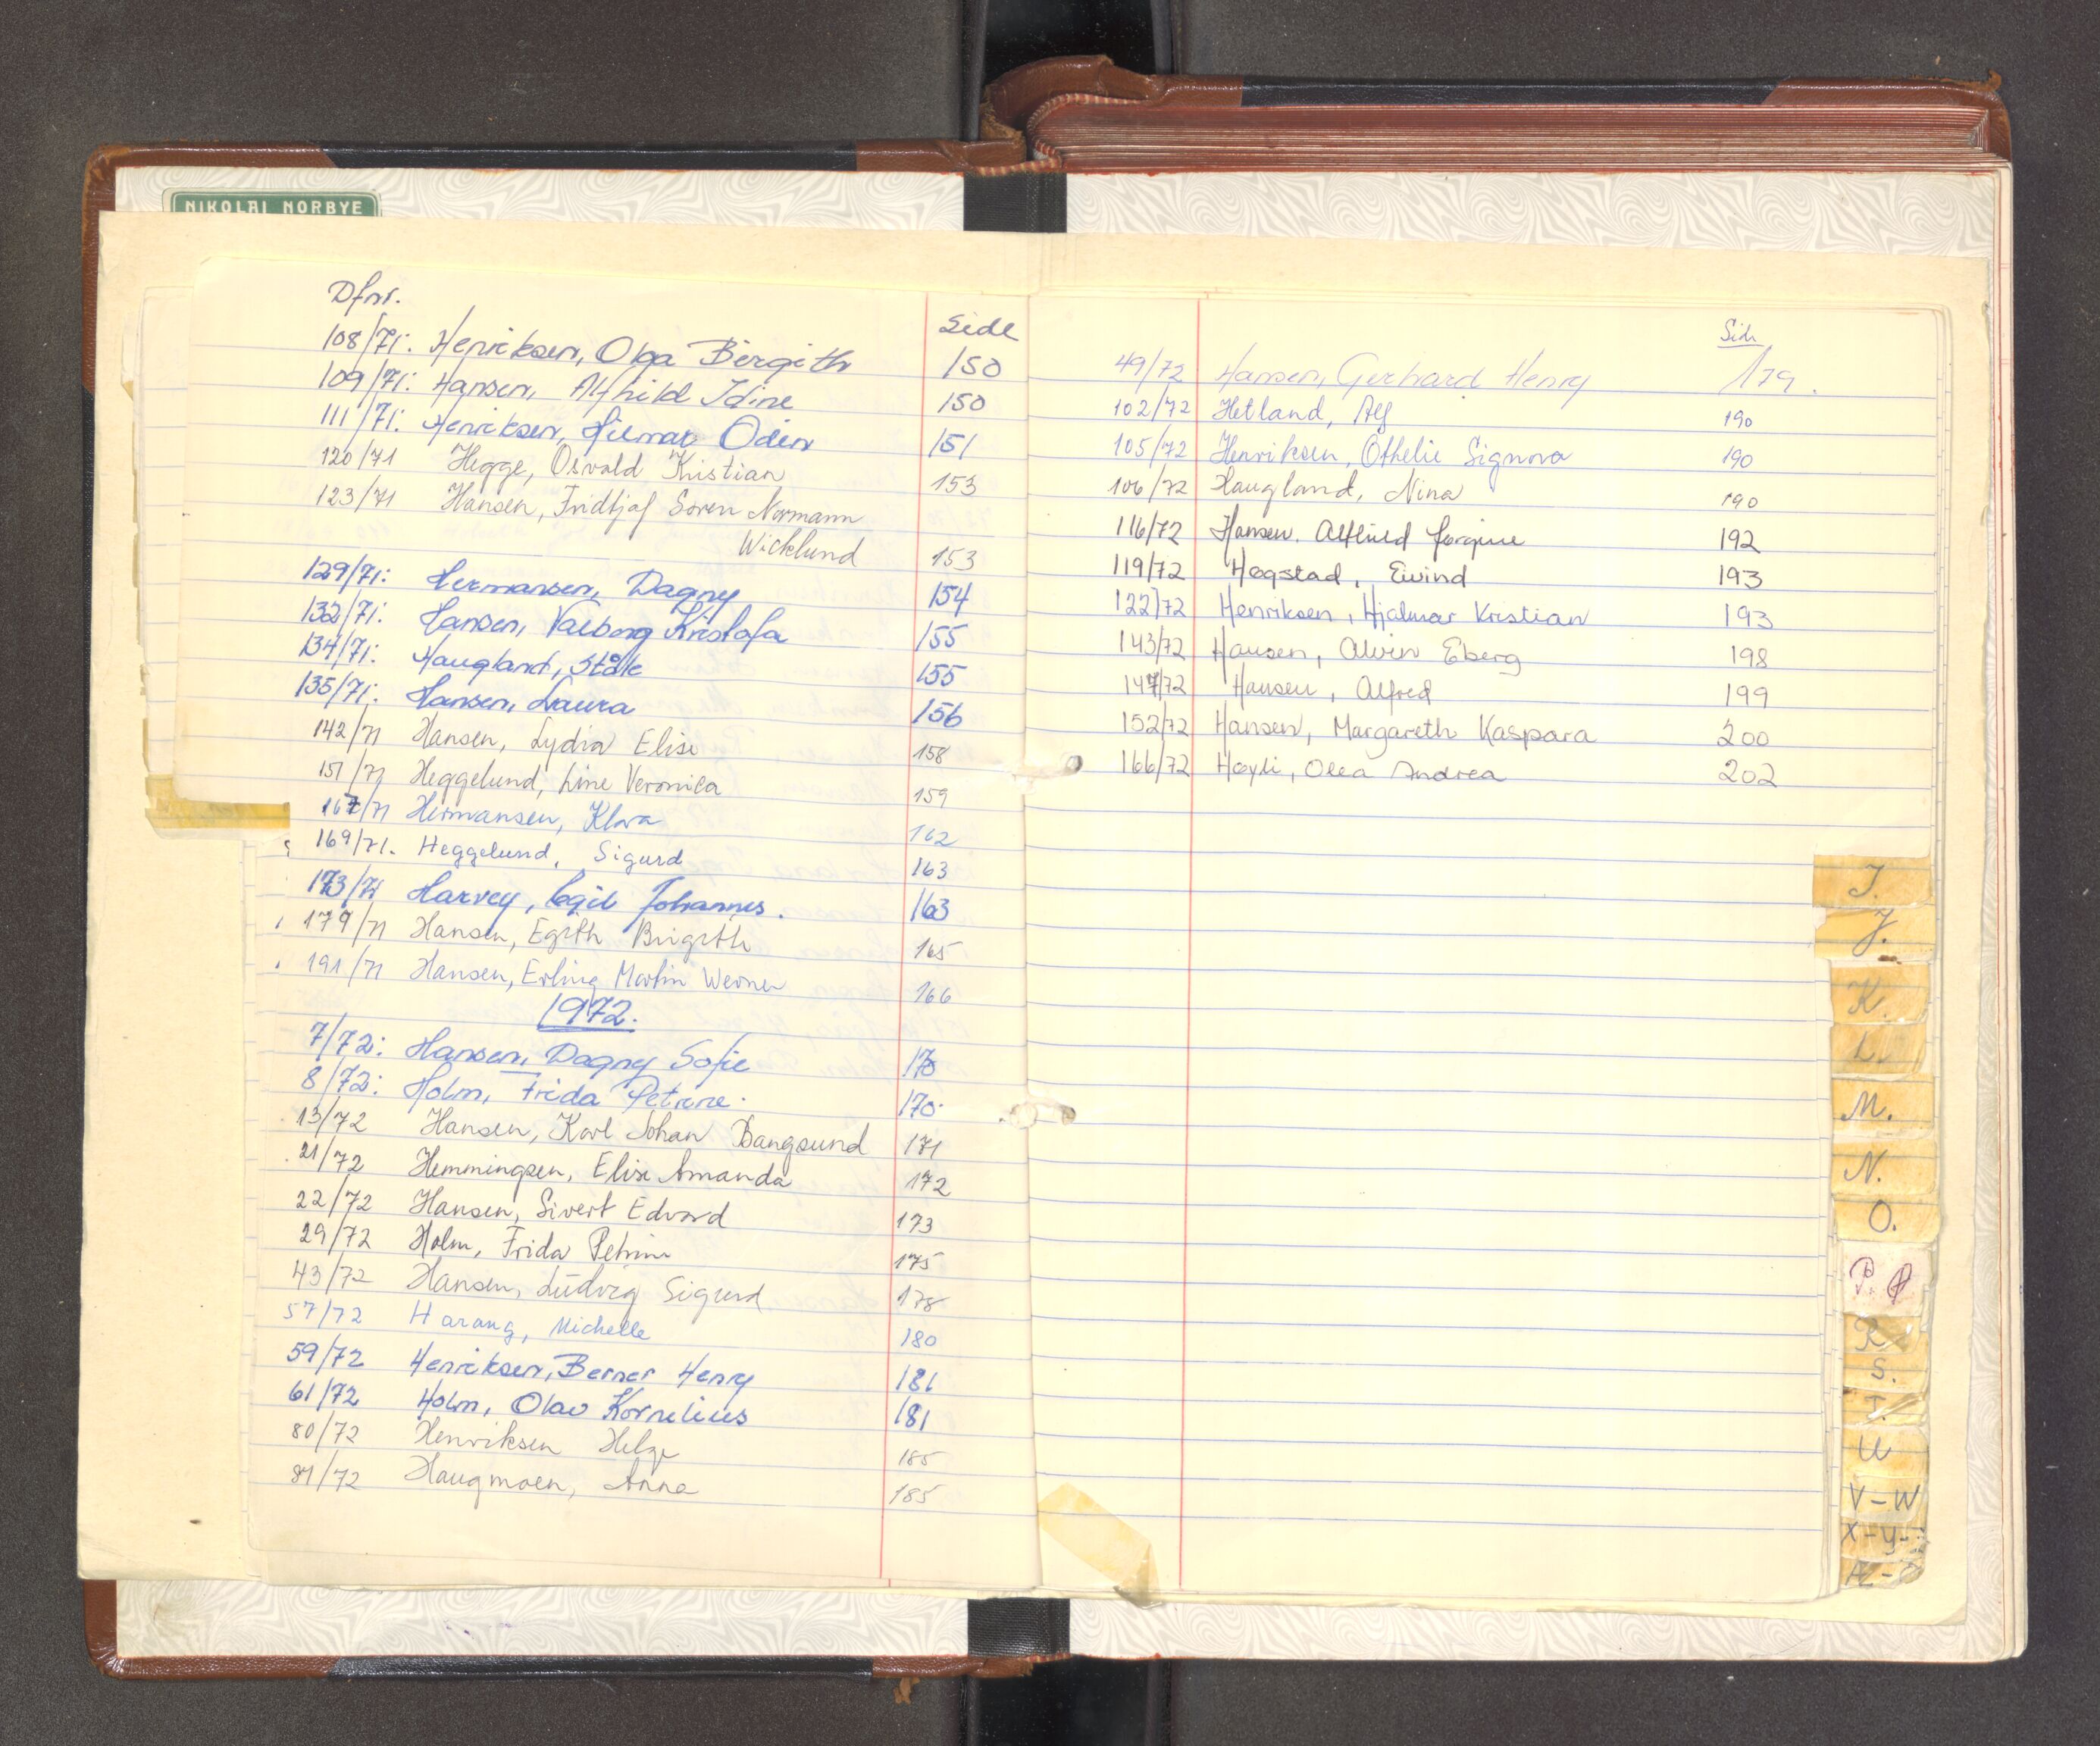 NIKOLAI NORBYE
Dfnr. Side
108/71: Henriksen, Olga Bergith 150
109/71: Hansen, Alfhild Idine 150
111/71: Henriksen, Hilmar Odin 151
120/71 Hegge, Osvald Kristian 153
123/71 Hansen, Fridtjof Søren Normann
Wicklund 153
129/71: Hermansen, Dagny 154
132/71: Hansen, Valborg Kristofa 155
134/71: Haugland, Ståle 155
135/71: Hansen, Laura 156
142/71 Hansen, Lydia Elise 158
151/71 Heggelund, Line Veronica 159
167/71 Hermansen, Klara 162
169/71. Heggelund, Sigurd 163
173/71 Harvey, Egil Johannes. 163
179/71 Hansen, Egith Birgith 165
191/71 Hansen, Erling Martin Werner 166
1972.
7/72: Hansen, Dagny Sofie 170
8/72: Holm, Frida Petrine. 170.
13/72 Hansen, Karl Johan Bangsund 171
21/72 Hemmingsen, Elise Amanda 172
22/72 Hansen, Sivert Edvard 173
29/72 Holm, Frida Petrine 175
43/72 Hansen, Ludvig Sigurd 178
57/72 Harang, Michelle 180
59/72 Henriksen, Berner Henry 181
61/72 Holm, Olav Kornelius 181
80/72 Henriksen Helge 185
81/72 Haugmoen, Anna 185
Side
49/72 Hansen, Gerhard Henry 179.
102/72 Hetland, Alf 190
105/72 Henriksen, Othelie Signora 190
106/72 Haugland, Nina 190
116/72 Hansen. Alfhild Jørgine 192
119/72 Høgstad, Eivind 193
122/72 Henriksen, Hjalmar Kristian 193
143/72 Hansen, Alvin Eberg 198
147/72 Hansen, Alfred 199
152/72 Hansen, Margareth Kaspara 200
166/72 Høyli, Olea Andrea 202
I.
J.
K.
L.
M.
N.
O.
P.
R
S.
T.
U
V-W
X-Y-